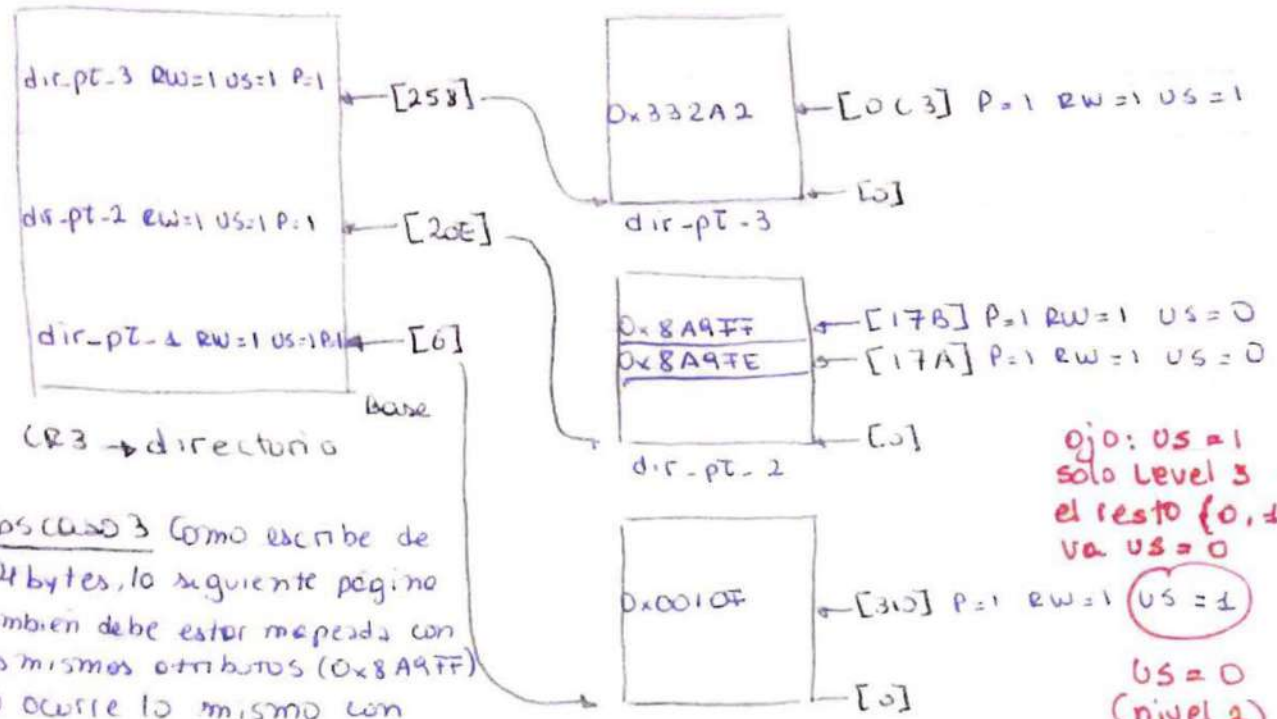 dir_pt-3 RW=1 US=1 P=1
[258]
dir-pt-2 RW=1 US=1 P=1
[20E]
dir_pt-1 RW=1 US=1 P=1
[6]
Base
CR3 → directorio
0x332A2
[0C3] P=1 RW=1 US=1
[0]
dir-pt-3
0x8A9FF
[17B] P=1 RW=1 US=0
0x8A9FE
[17A] P=1 RW=1 US=0
[0]
dir-pt-2
0x0010F
[310] P=1 RW=1 US=1
[0]
ojo: US=1
solo Level 3
el resto {0,1
va US=0
US=0
(nivel 2)
caso 3 Como escribe de
4 bytes, la siguiente página
debe estar mapeada con
mismos atributos (0x8A9FF)
ocurre lo mismo con